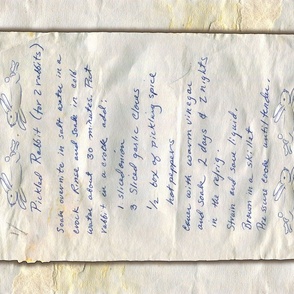 Pickled Rabbit (for 2 rabbits)
Soak overnite in salt water in a
crock. Rinse and soak in cold
water about 30 minutes. Put
rabbit in a crock add:
1 sliced onion
3 sliced garlic cloves
1/2 box of pickling spice
hot peppers
Cover with warm vinegar
and soak 2 days & 2 nights
in the refrig.
Strain and save liquid.
Brown in a skillet
Pressure cook until tender.